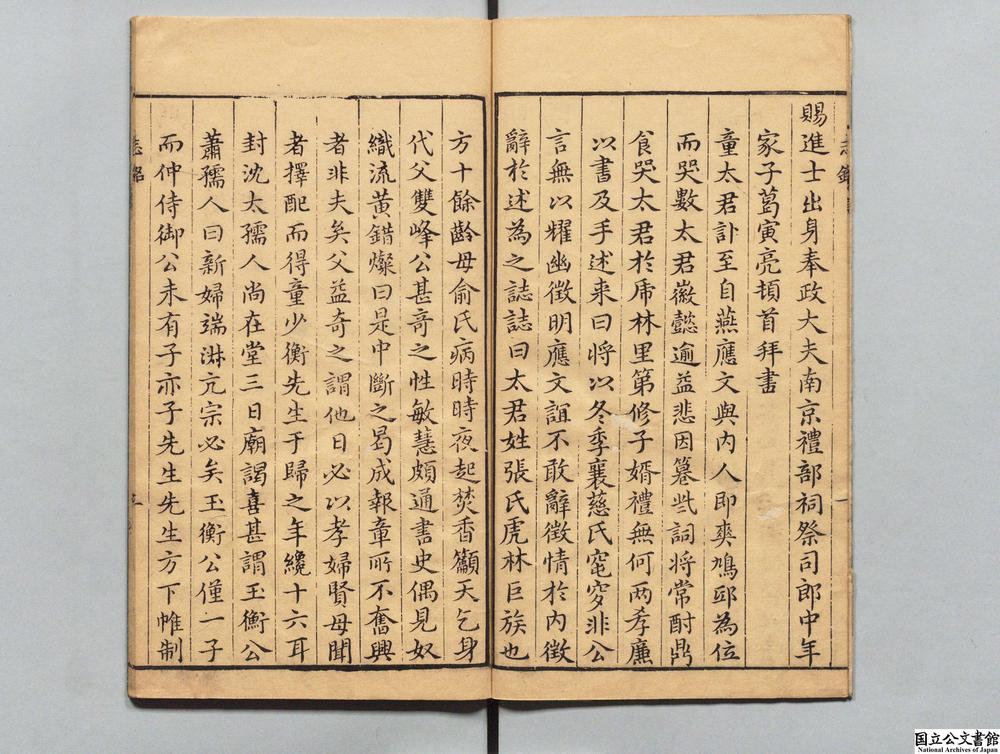 賜進士出身奉政大夫南京禮部祠祭司郎中年
家子葛寅亮頓首拜書
童太君訃至自燕應文與內人即爽鳩邸為位
而哭數太君徽懿逾益悲因纂此詞將常酎鼎
食哭太君於虎林里第修子婿禮無何兩孝廉
以書及手述来曰將以冬季襄慈氏窀穸非公
言無以耀幽徵明應文誼不敢辭徵情於內徵
辭於述為之誌誌曰太君姓張氏虎林巨族也
方十餘齡母俞氏病時時夜起焚香籲天乞身
代父雙峰公甚奇之性敏慧頗通書史偶見奴
織流黃錯燦曰是中斷之曷成報章所不奮興
者非夫矣父益奇之謂他日必以孝婦賢母聞
者擇配而得童少衡先生于歸之年纔十六耳
封沈太孺人尚在堂三日廟謁喜甚謂玉衡公
蕭孺人曰新婦端淋亢宗必矣玉衡公僅一子
而仲侍御公未有子亦子先生先生方下帷制
国立公文書館
National Archives of Japan